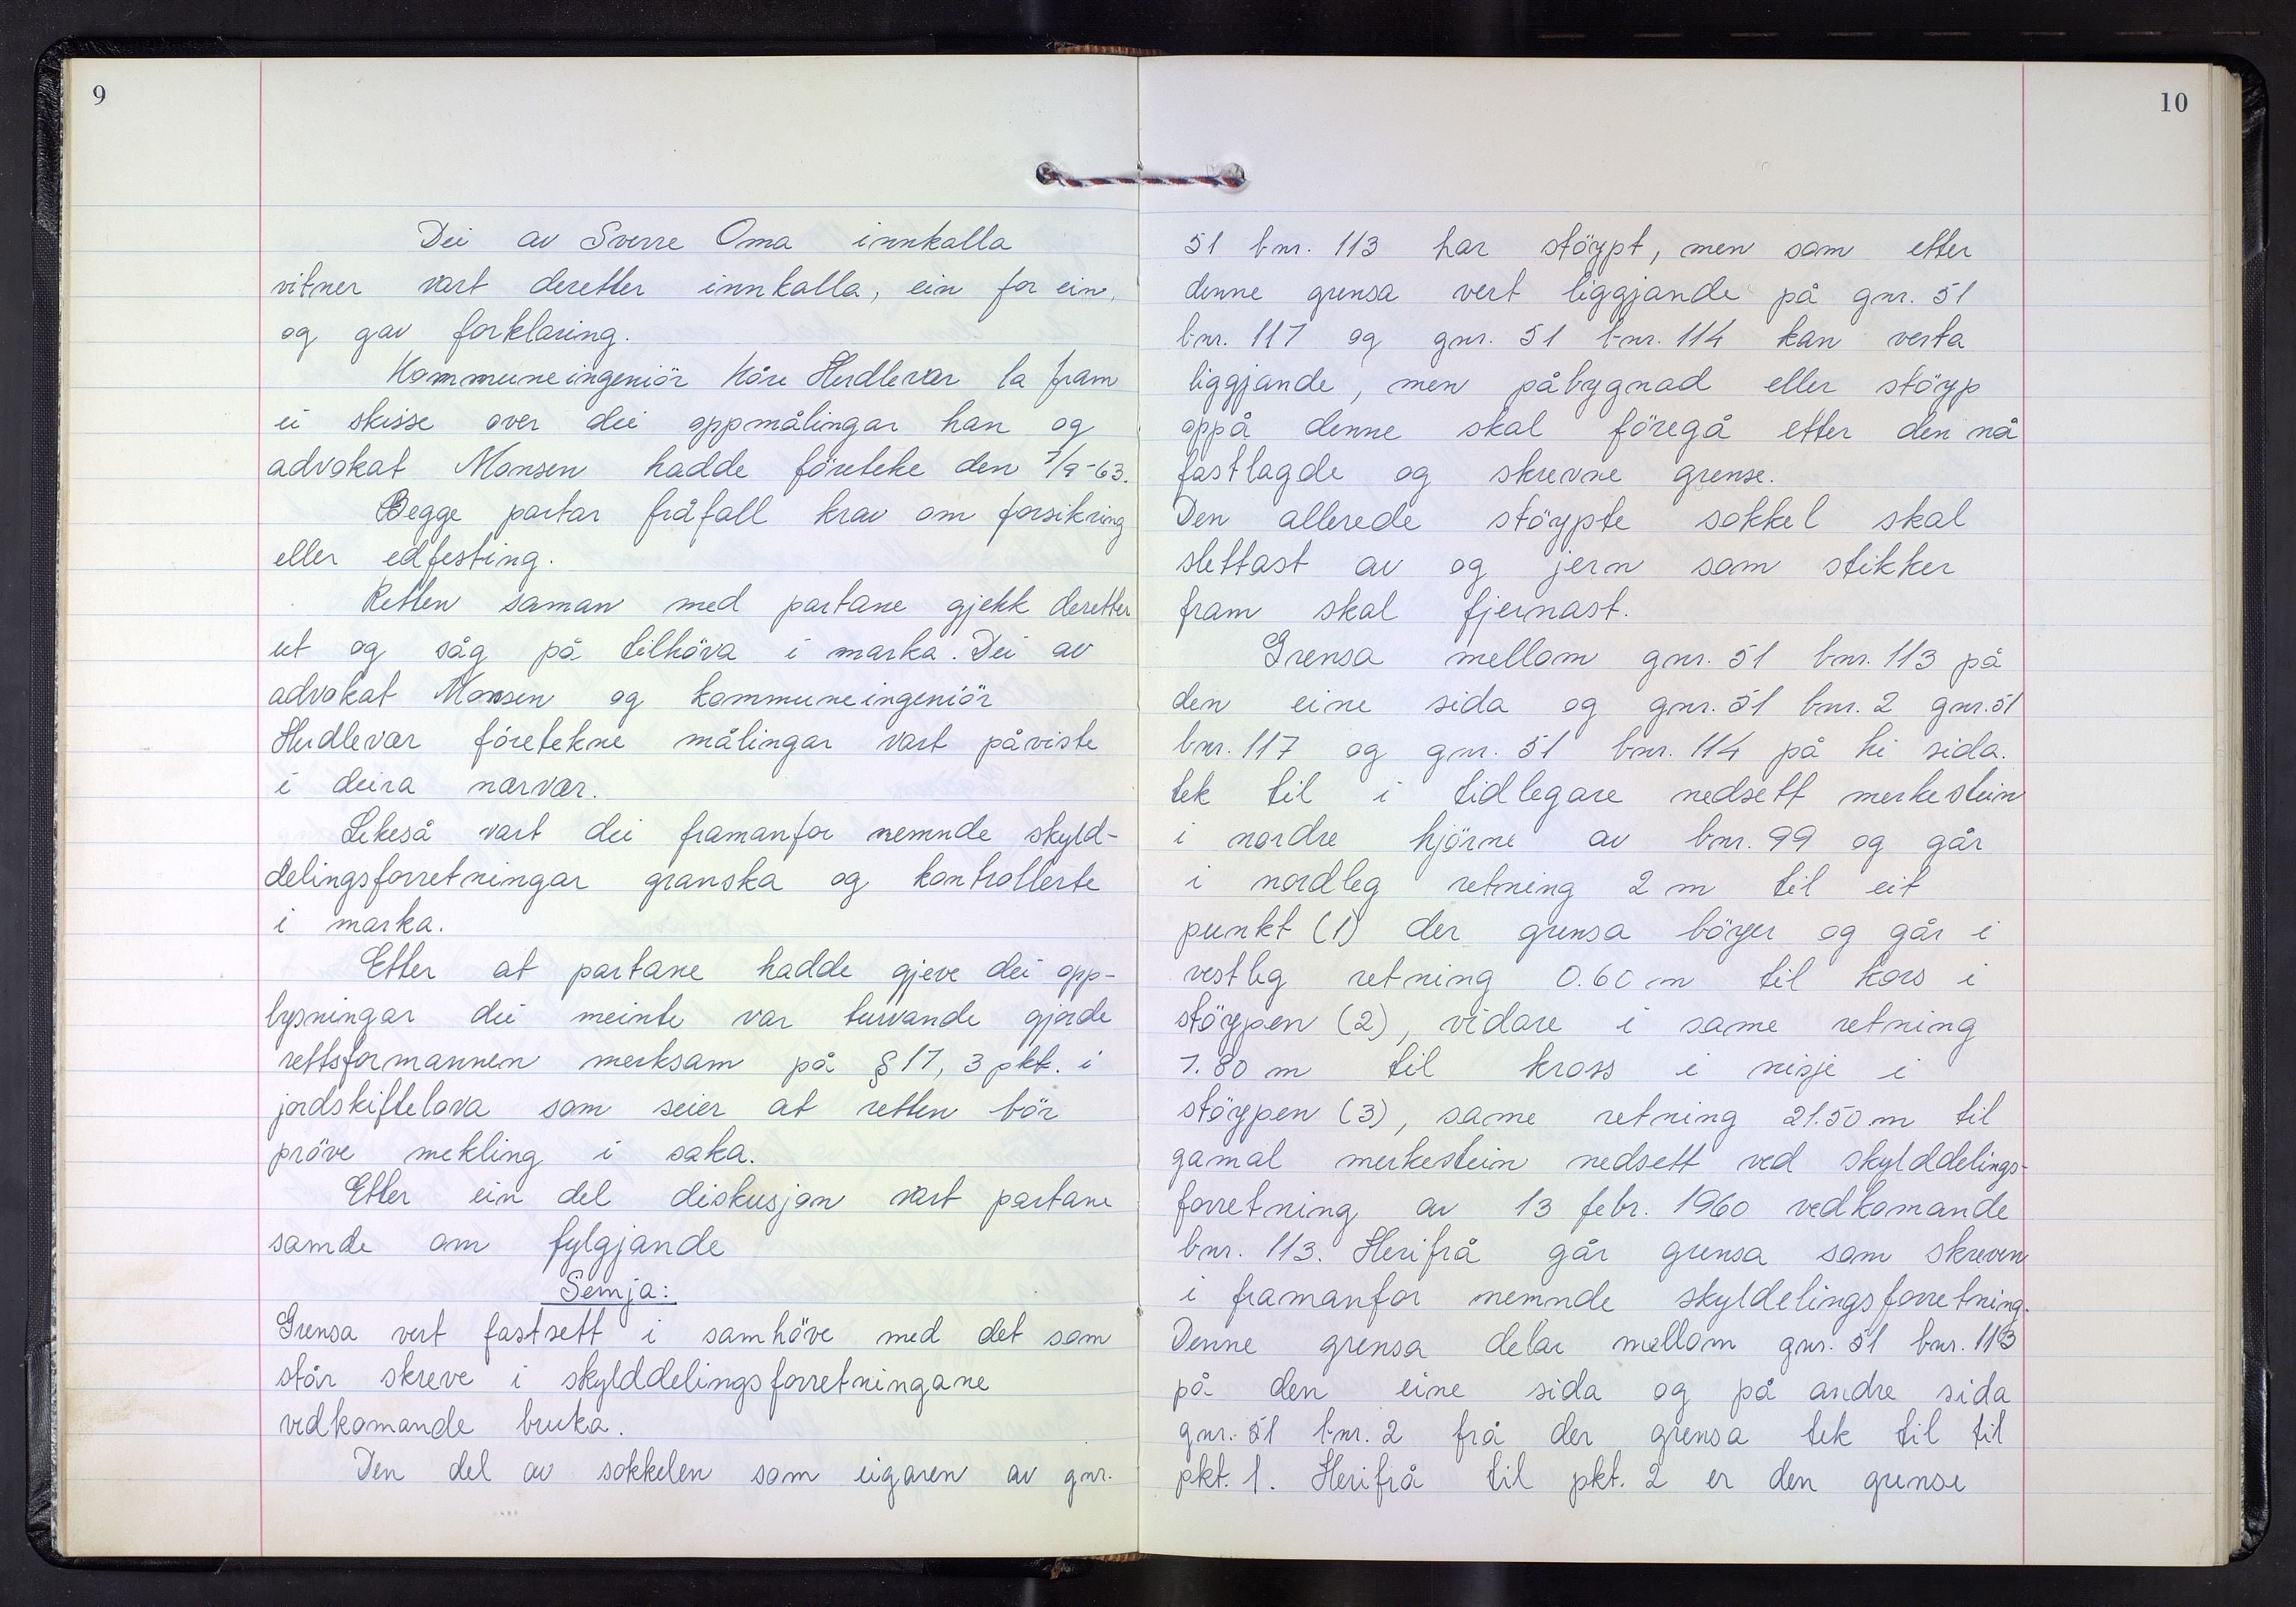 9
Dei av Sverre Oma innkalla
vitner vart deretter innkalla, ein for ein,
og gav forklaring.
Kommuneingeniör Kåre Herdlevær la fram
ei skisse over dei oppmålingar han og
advokat Monsen hadde företeke den 7/9-63.
Begge partar fråfall krav om forsikring
eller edfesting.
Retten saman med partane gjekk deretter
ut og såg på tilhöva i marka. Dei av
advokat Monsen og kommuneingeniör
Herdlevær företekne målingar vart påviste
i deira nærvær.
Likeså vart dei framanfor nemnde skyld-
delingsforretningar granska og kontrollerte
i marka.
Etter at partane hadde gjeve dei opp-
lysningar dei meinte var turvande gjorde
rettsformannen merksam på § 17, 3 pkt. i
jordskiftelova som seier at retten bör
pröve mekling i saka.
Etter ein del diskusjon vart partane
samde om fylgjande
Semja:
Grensa vert fastsett i samhöve med det som
står skreve i skylddelingsforretningane
vedkomande bruka.
Den del av sokkelen som eigaren av gnr.
10
51 bnr. 113 har stöypt, men som etter
denne grensa vert liggjande på gnr. 51
bnr. 117 og gnr. 51 bnr. 114 kan verta
liggjande, men påbygnad eller stöyp
oppå denne skal föregå etter den nå
fastlagde og skrevne grense.
Den allerede stöypte sokkel skal
slettast av og jern som stikker
fram skal fjernast.
Grensa mellom gnr. 51 bnr. 113 på
den eine sida og gnr. 51 bnr. 2 gnr. 51
bnr. 117 og gnr. 51 bnr. 114 på hi sida.
tek til i tidlegare nedsett merkestein
i nordre hjörne av bnr. 99 og går
i nordleg retning 2 m til eit
punkt (1) der grensa böyer og går i
vestleg retning 0.60 m til kors i
stöypen (2), vidare i same retning
7.80 m til kross i nisje i
stöypen (3), same retning 21.50 m til
gamal merkestein nedsett ved skylddelings-
forretning av 13 febr. 1960 vedkomande
bnr. 113. Herifrå går grensa som skreven
i framanfor nemnde skyldelingsforretning.
Denne grensa delar mellom gnr. 51 bnr. 113
på den eine sida og på andre sida
gnr. 51 bnr. 2 frå der grensa tek til til
pkt. 1. Herifrå til pkt. 2 er den grense